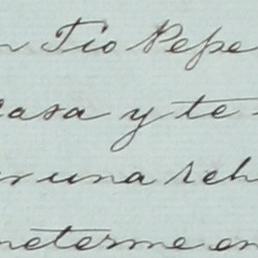 n Tio Pepe
casa y te
r una reh
meterme en